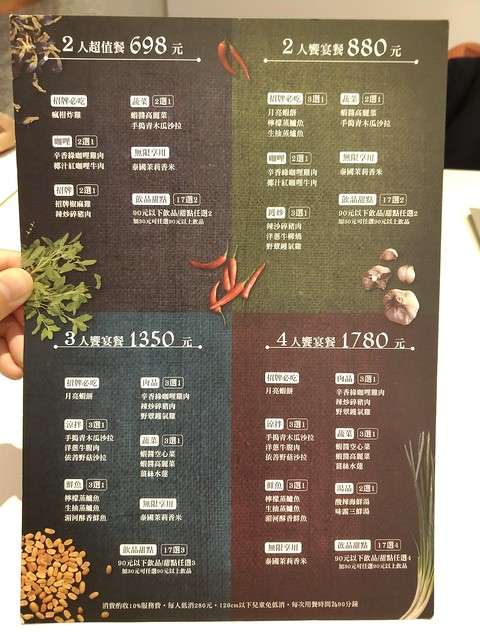 2人超值餐 698 元
招牌必吃
瘋柑炸雞
咖哩 2選1
辛香綠咖哩雞肉
椰汁紅咖哩牛肉
招牌 2選1
招牌椒麻雞
辣炒碎豬肉
蔬菜 2選1
蝦醬高麗菜
手搗青木瓜沙拉
無限享用
泰國茉莉香米
飲品甜點 17選2
90元以下飲品/甜點任選2
加30元可任選90元以上飲品
2人饗宴餐 880 元
招牌必吃 3選1
月亮蝦餅
檸檬蒸鱸魚
生抽蒸鱸魚
咖哩 2選1
辛香綠咖哩雞肉
椰汁紅咖哩牛肉
鑊炒 3選1
辣沙碎豬肉
洋蔥牛柳燒
野蕈鑊氣雞
蔬菜 2選1
蝦醬高麗菜
手搗青木瓜沙拉
無限享用
泰國茉莉香米
飲品甜點 17選2
90元以下飲品/甜點任選2
加30元可任選90元以上飲品
3人饗宴餐 1350 元
招牌必吃
月亮蝦餅
涼拌 3選1
手搗青木瓜沙拉
洋蔥牛腱肉
依善野菇沙拉
鮮魚 3選1
檸檬蒸鱸魚
生抽蒸鱸魚
湄河酥香鮮魚
肉品 3選1
辛香綠咖哩雞肉
辣炒碎豬肉
野蕈鑊氣雞
蔬菜 3選1
蝦醬空心菜
蝦醬高麗菜
薑絲水蓮
無限享用
泰國茉莉香米
飲品甜點 17選3
90元以下飲品/甜點任選3
加30元可任選90元以上飲品
4人饗宴餐 1780 元
招牌必吃
月亮蝦餅
涼拌 3選1
手搗青木瓜沙拉
洋蔥牛腱肉
依善野菇沙拉
鮮魚 3選1
檸檬蒸鱸魚
生抽蒸鱸魚
湄河酥香鮮魚
無限享用
泰國茉莉香米
肉品 3選1
辛香綠咖哩雞肉
辣炒碎豬肉
野蕈鑊氣雞
蔬菜 3選1
蝦醬空心菜
蝦醬高麗菜
薑絲水蓮
湯品 2選1
酸辣海鮮湯
味露三鮮湯
飲品甜點 17選4
90元以下飲品/甜點任選4
加30元可任選90元以上飲品
消費酌收10%服務費，每人低消280元，120cm以下兒童免低消，每次用餐時間為90分鐘